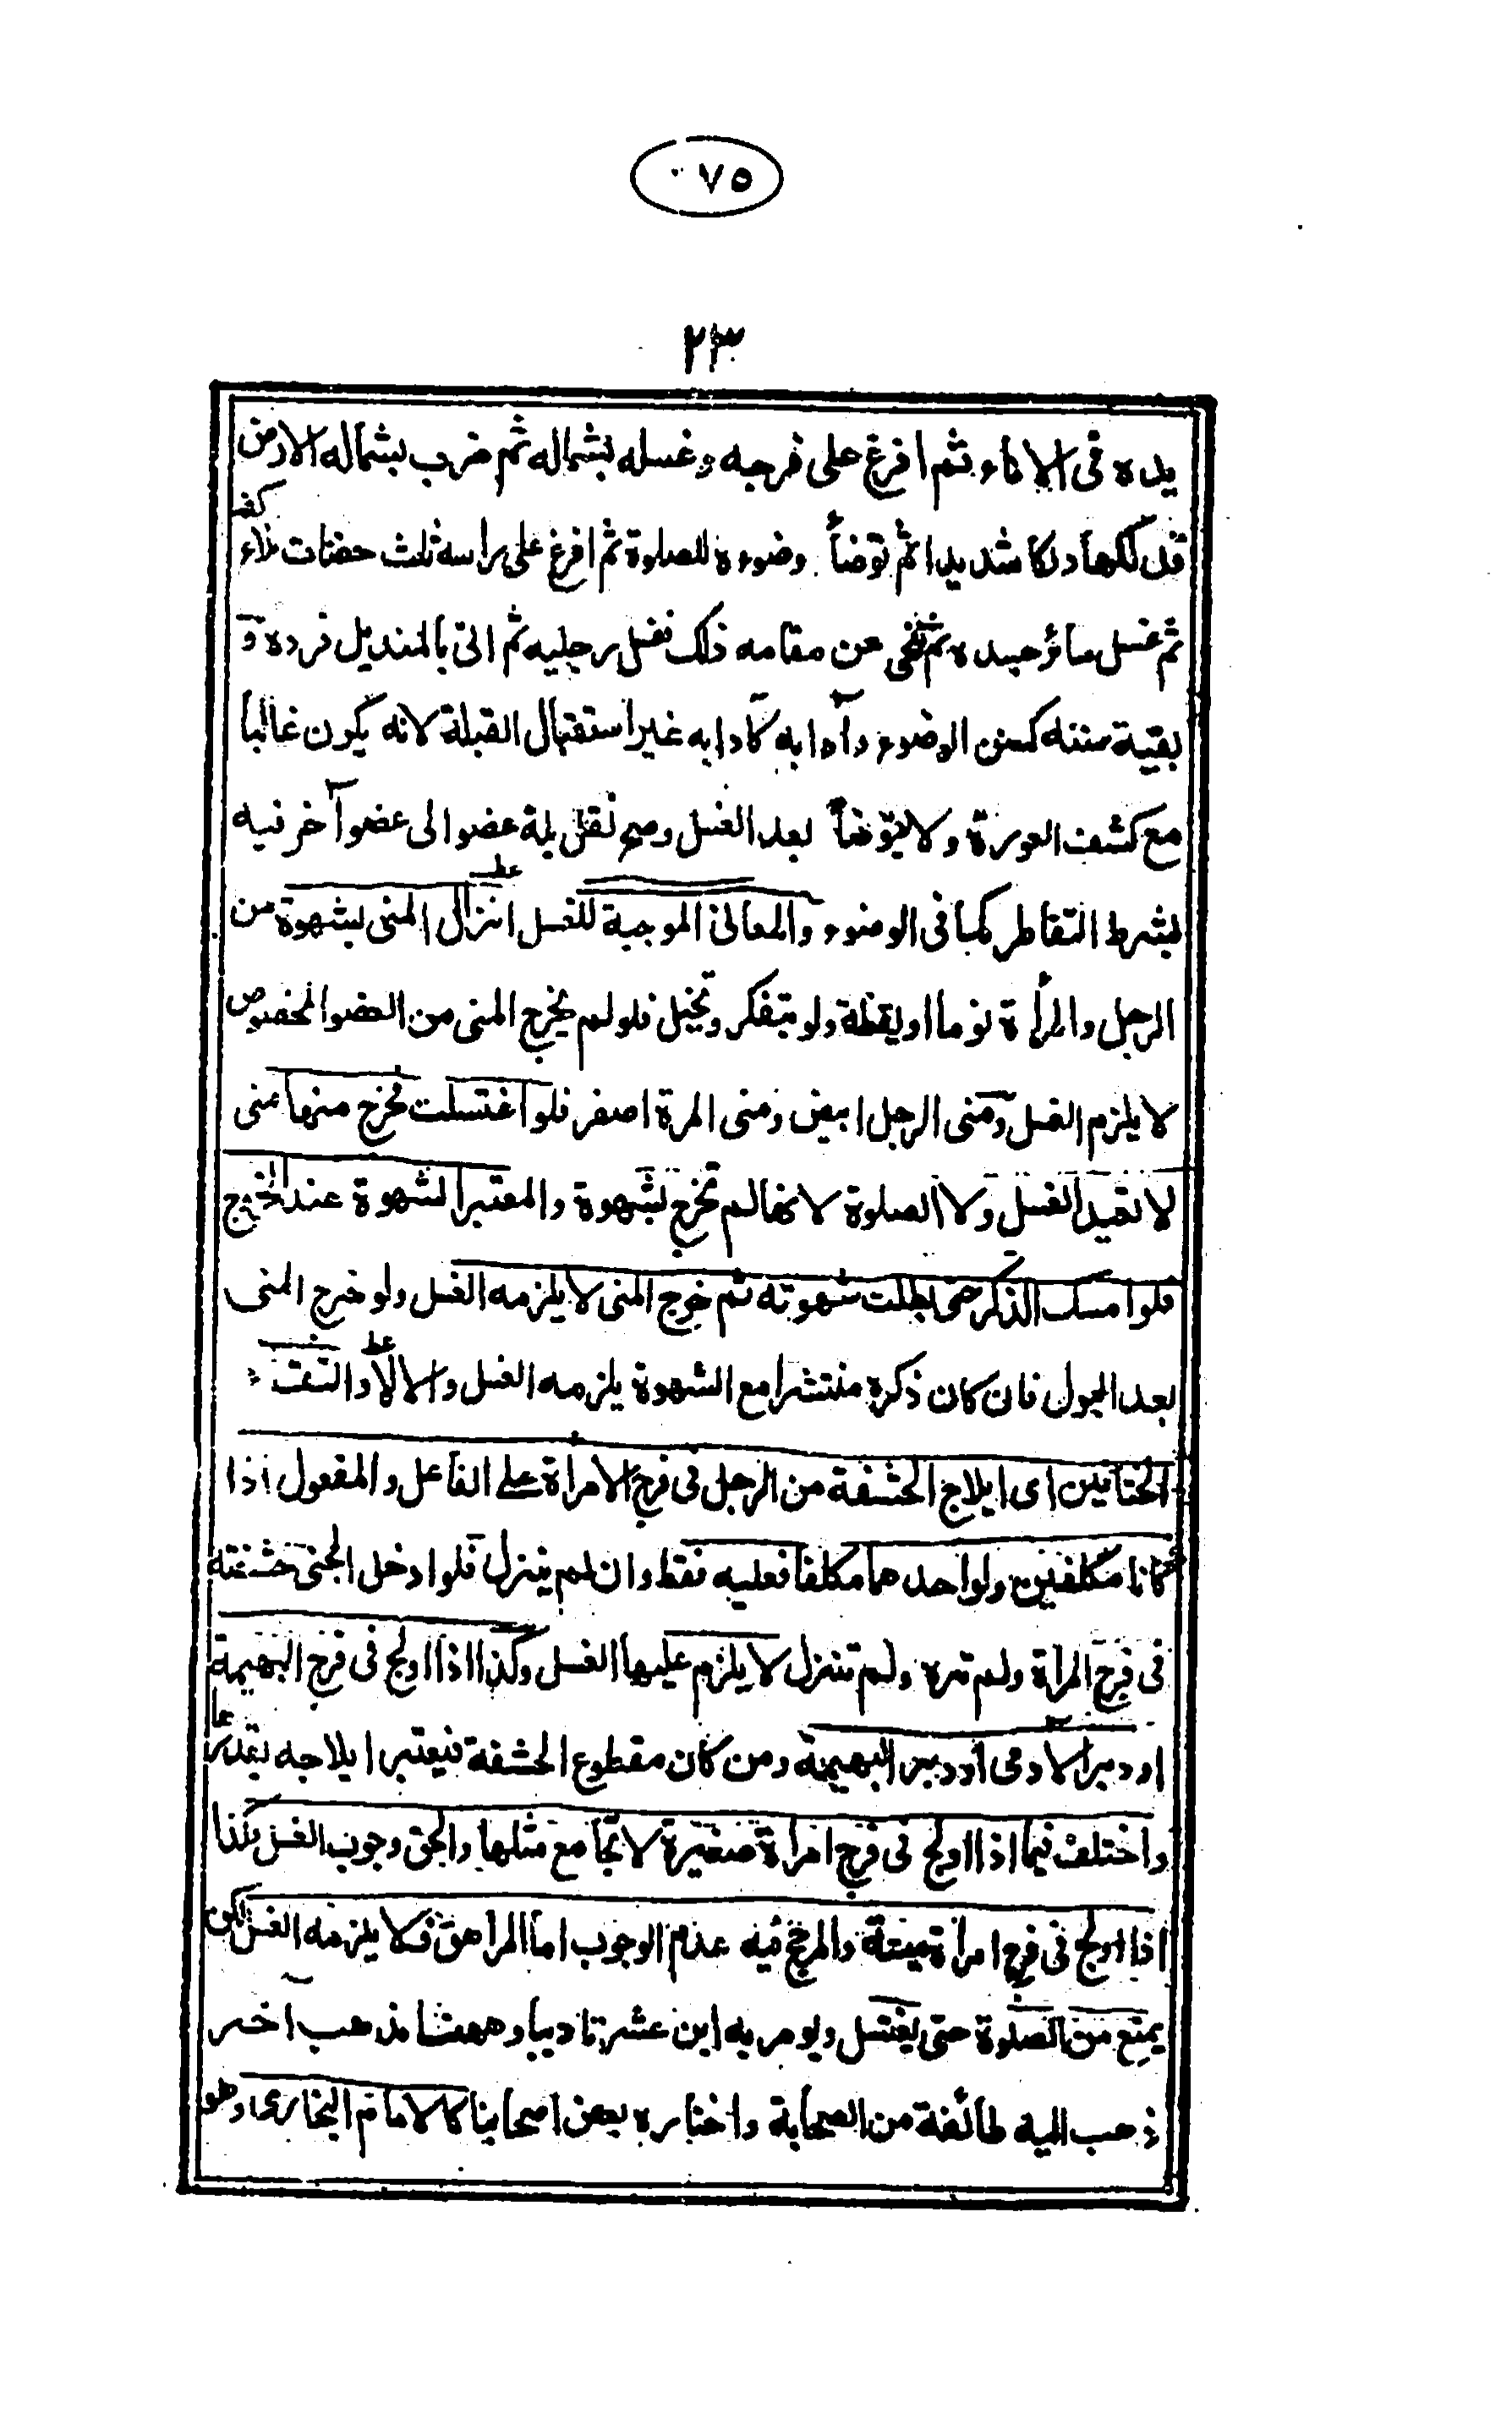 ٠٧٥
٢٣
يده فى الاناء ثم افرغ على فرجه وغسله بشماله ثم ضرب بشماله الارض
فدلكها دلكا شديدا ثم توضأ وضوءه للصلوة ثم افرغ على راسه ثلث حفنات ملاء كفه
ثم غسل سائر جسده ثم تنحى عن مقامه ذلك فغسل رجليه ثم اتى بالمنديل فرده و
بقية سننه كسنن الوضوء وآدابه كآدابه غير استقبال القبلة لانه يكون غالبا
مع كشف العورة ولا يتوضأ بعد الغسل وصح نقل بلة عضو الى عضو آخر فيه
بشرط التقاطر كما فى الوضوء والمعانى الموجبة للغسل انزال المنى بشهوة من
الرجل والمرأة نوما او يقظة ولو بتفكر وتخيل فلو لم يخرج المنى من العضو المخصوص
لا يلزم الغسل ومنى الرجل ابيض ومنى المرة اصفر فلو اغتسلت فخرج منها منى
لا تعيد الغسل ولا الصلوة لانها لم تخرج بشهوة والمعتبر الشهوة عند الخروج
فلو امسك الذكر حتى بطلت شهوته ثم خرج المنى لا يلزمه الغسل ولو خرج المنى
بعد البول فان كان ذكره منتشرا مع الشهوة يلزمه الغسل والا لا والتقـ
الختانين اى ايلاج الحشفة من الرجل فى فرج الامرأة على الفاعل والمفعول اذا
كانا مكلفين ولو احدهما مكلفا فعليه فقط وان لم ينزل فلو ادخل الجنى حشفته
فى فرج المرأة ولم تره ولم تنزل لا يلزم عليها الغسل وكذا اذا اولج فى فرج البهيمة
او دبر الآدمى او دبر البهيمة ومن كان مقطوع الحشفة فيعتبر ايلاجه بقدرها
واختلف فيما اذا اولج فى فرج امرأة صغيرة لا تجامع مثلها والحق وجوب الغسل كذا
اذا اولج فى فرج امرأة ميتة والمرجح فيه عدم الوجوب اما المراهق فلا يلزمه الغسل لكن
يمنع من الصلوة حتى يغتسل ويومر به ابن عشر تاديبا وههنا مذهب آخر
ذهب اليه طائفة من الصحابة واختاره بعض اصحابنا كالامام البخارى وهو